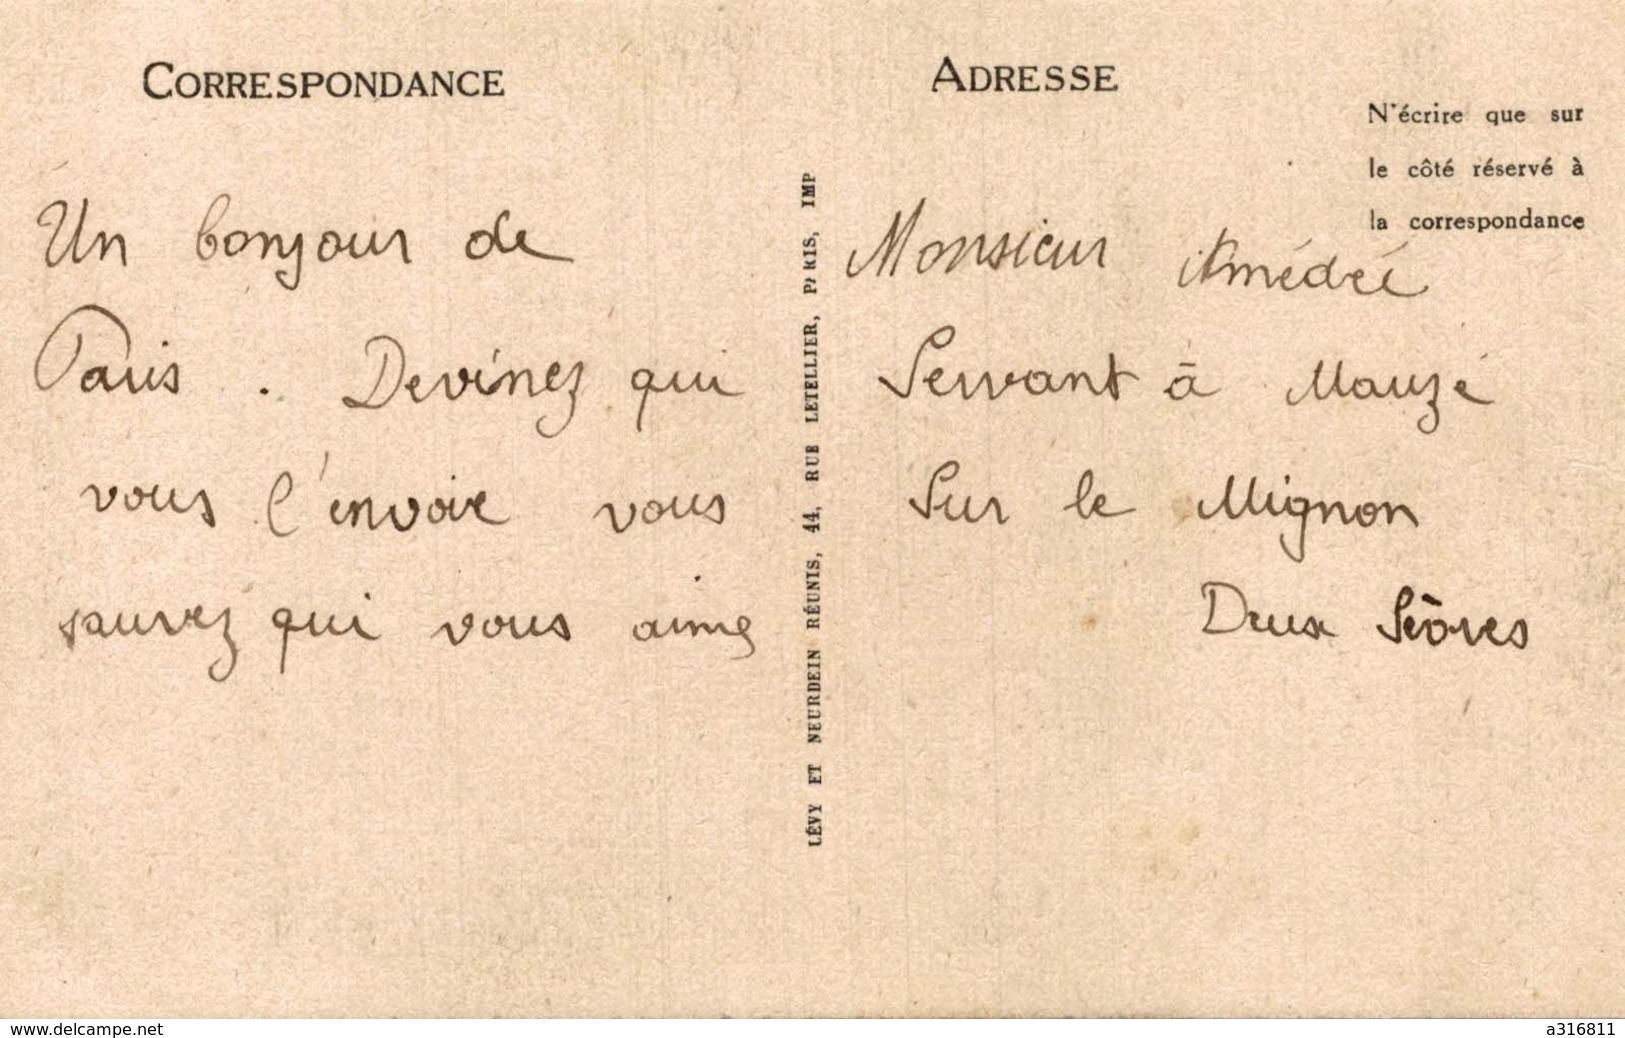 CORRESPONDANCE
Un bonjour de
Paris. Devinez qui
vous l'envoie vous
saurez qui vous aime
LÉVY ET NEURDEIN RÉUNIS, 44, RUE LETELLIER, PARIS, IMP
ADRESSE
N'écrire que sur
le côté réservé à
la correspondance
Monsieur Amédéé
Servant à Mauzé
Sur le Mignon
Deux Sèvres
www.delcampe.net
a316811